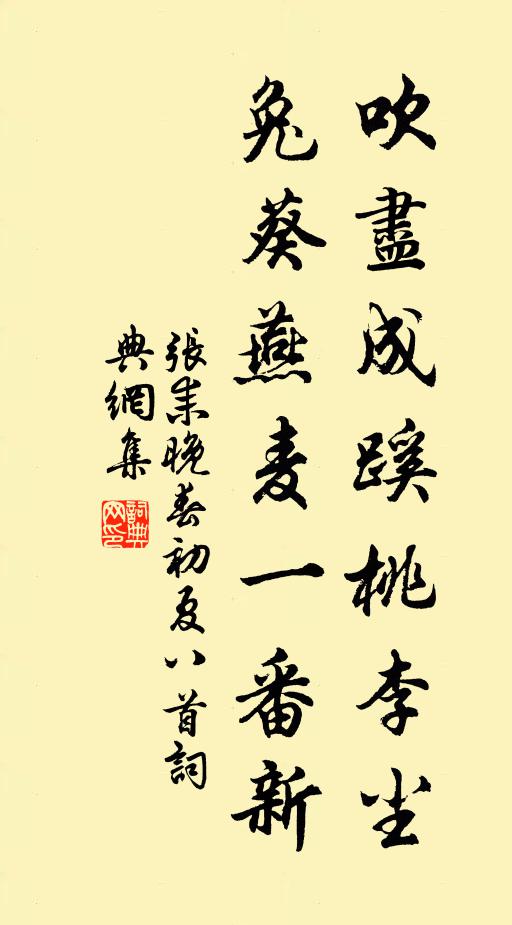 吹盡成蹊桃李尘
兔葵燕麦一番新
張耒晚春初夏八首詞
典網集
詞典网印